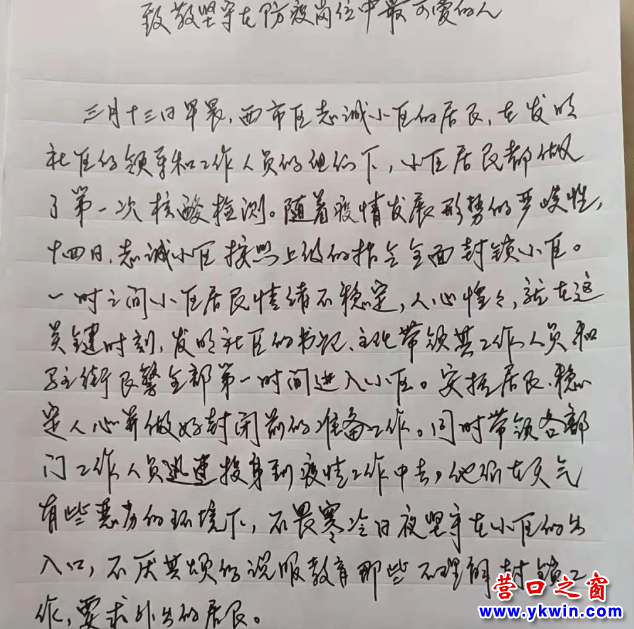 致敬坚守在防疫岗位中最可爱的人
三月十三日早晨,西市区志诚小区的居民,在发明
社区的领导和工作人员的组织下,小区居民都做
了第一次核酸检测。随着疫情发展形势的严峻性,
十四日,志诚小区按照上级的指令全面封锁小区。
一时之间小区居民情绪不稳定,人心惶々,就在这
关键时刻,发明社区的书记、主任带领其工作人员和
街民警全部第一时间进入小区。安抚居民、稳
定人心并做好封闭前的准备工作。同时带领各部
门工作人员迅速投身到疫情工作中去,他们在天气
有些恶劣的环境下,不畏寒冷日夜坚守在小区的出
入口,不厌其烦的说服教育那些不理解封锁工
作,要求外出的居民。
营口之窗
www.ykwin.com